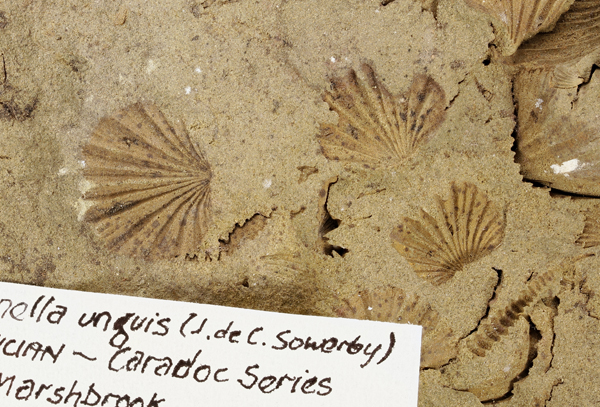 nella unguis (J. de C. Sowerby)
ICIAN ~ Caradoc Series
Marshbrook